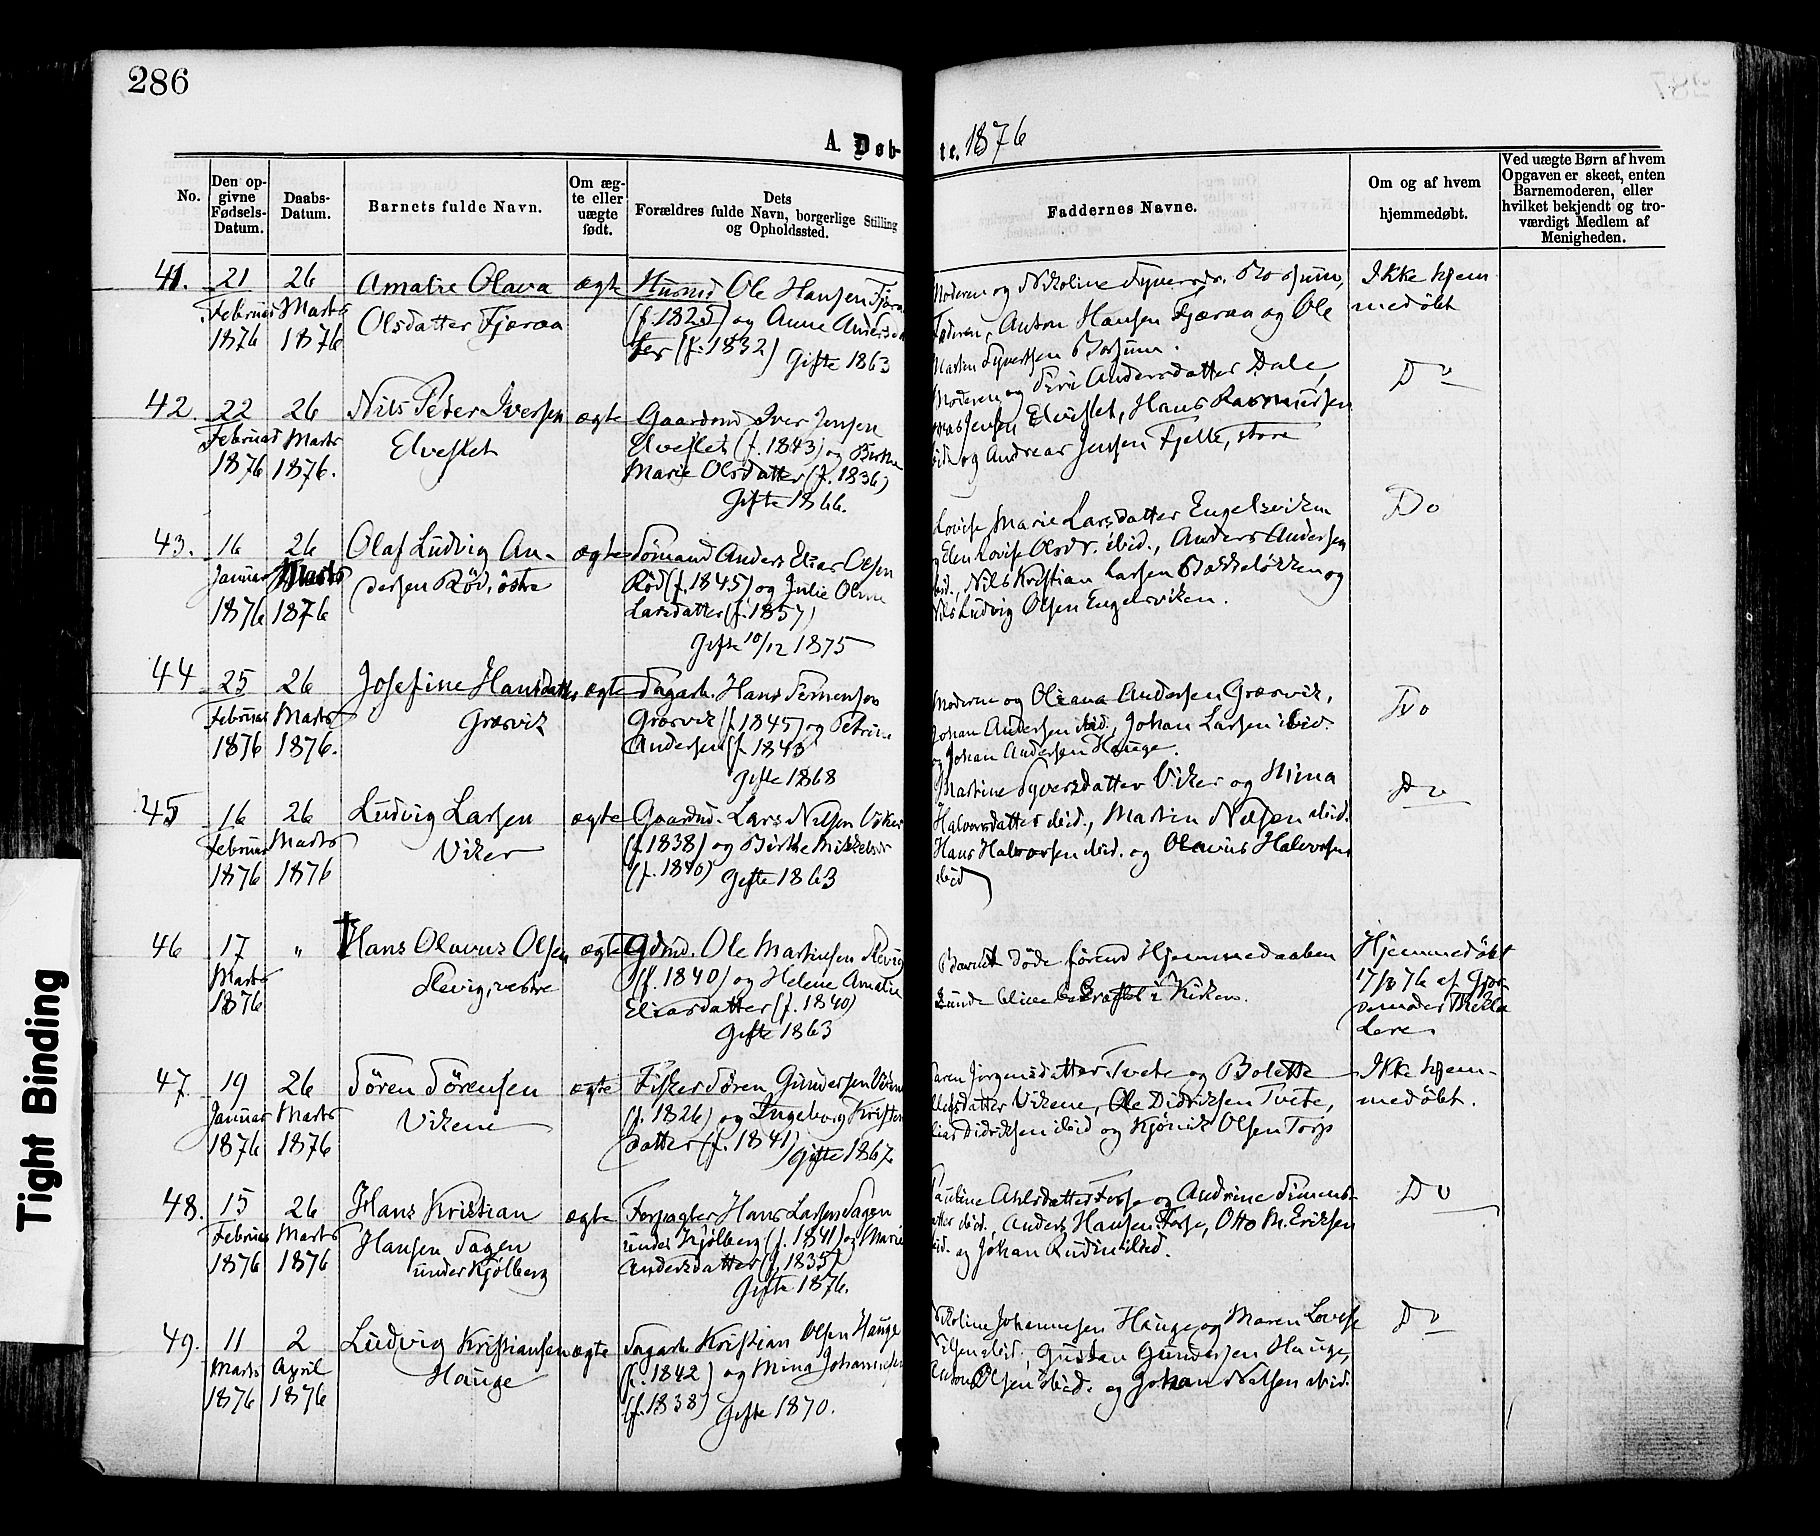 286
A. Døb-
te. 1876
No.
Den op-
givne
Fødsels-
Datum.
Daabs-
Datum.
Barnets fulde Navn.
Om æg-
te eller
uægte
født.
Dets
Forældres fulde Navn, borgerlige Stilling
og Opholdssted.
Faddernes Navne.
Om og af hvem
hjemmedøbt.
Ved uægte Børn af hvem
Opgaven er skeet, enten
Barnemoderen, eller
hvilket bekjendt og tro-
værdigt Medlem af
Menigheden.
41. 21 26 Amalie Olava ægte Husmd Ole Hansen Fjæraa
Februar Marts Olsdatter Fjæraa (f. 1825) og Anne Andersdat
1876 1876 ter (f. 1832) Gifte 1863
Moderen og Nikoline Syversdr. Borsum,
Faderen, Anton Hansen Fjæraa og Ole
Martin Syvertsen Borsum.
Ikke hjem
medøbt
42. 22 26 Nils Peder Iversen ægte Gaardmd Iver Jensen
Februar Marts Elveflet Elveflet (f. 1843) og Birthe
1876 1876. Marie Olsdatter (f. 1836)
Gifte 1866.
Moderen og Siri Andersdatter Dale,
Jensen Elveflet, Hans Rasmussen
ibid. og Andreas Jensen Fjelle, store
Do
43. 16 26 Olaf Ludvig An- ægte Sømand Anders Elias Olsen
Januar Marts dersen Rød, östre Rød (f. 1845) og Julie Oline
1876 1876 Larsdatter (f. 1857)
Gifte 10/12 1875
Lovise Marie Larsdatter Engelsviken
og Elen Lovise Olsdr. ibid., Anders Andersen
ibid., Nils Kristian Larsen Bakkeløkken og
Nils Ludvig Olsen Engelsviken.
Do
44 25 26 Josefine Hansdatter ægte Sagarb. Hans Simensen
Februar Marts Græsvik Græsvik (f. 1845) og Petrine
1876 1876. Andersen (f. 1843)
Gifte 1868
Moderen og Oliana Andersen Græsvik,
Johan Andersen ibid, Johan Larsen ibid.
og Johan Andersen Hauge.
Do
45 16 26 Ludvig Larsen ægte Gaardmd. Lars Nilsen Viker
Februar Marts Viker (f. 1838) og Birthe Mikkelsdr
1876 1876 (f. 1840) Gifte 1863
Martine Syversdatter Viker og Mina
Halvorsdatter ibid., Martin Nilsen ibid.
Hans Halvorsen ibid. og Olavus Halvorsen
ibid
Do
46 17 " Hans Olavus Olsen ægte Gdmd. Ole Martinsen Slevig
Marts Slevig, vestre (f. 1840) og Helene Amalie
1876 Eliasdatter (f. 1840)
Gifte 1863
Barnet døde førend Hjemmedaaben
kunde blive bekræftet i Kirken.
Hjemmedøbt
17/3 76 af Gjor-
demoder Thekla
47. 19 26 Sören Sörensen ægte Fisker Sören Gundersen Vikene
Januar Marts Vikene (f. 1826) og Ingeborg Kristens
1876 1876 datter (f. 1841) Gifte 1867.
Karen Jörgensdatter Tvete og Bolette
datter Vikene, Ole Didriksen Tvete,
Elias Didriksen ibid og Kjönik Olsen Torp
Ikke hjem-
medøbt.
48. 15 26 Hans Kristian ægte Forpagter Hans Larsen Sagen
Februar Marts Hansen Sagen under Kjölberg (f. 1841) og Marie
1876 1876 under Kjölberg Andersdatter (f. 1835)
Gifte 1876.
Pauline Axelsdatter Forse og Andrine Simens-
datter ibid., Anders Hansen Forse, Otto M. Eriksen
ibid. og Johan Rudin ibid.
Do
49. 11 2 Ludvig Kristiansen ægte Sagarb. Kristian Olsen Hauge
Marts April Hauge (f. 1842) og Mina Johannesen
1876 1876 (f. 1838) Gifte 1870.
Nikoline Johannesen Hauge og Maren Lovise
Nilsen ibid, Gustav Gundersen Hauge,
Anton Olsen ibid. og Johan Nilsen ibid.
Do
Tight Binding